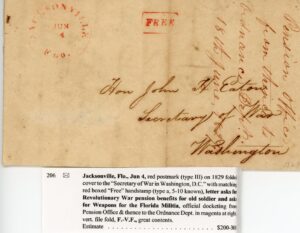 JACKSONVILLE
JUN
4
Flo.
FREE
Pension Office
from the
Ordnance
18th June
Hon John H. Eaton
Secretary of War
Washington
206 ✉ Jacksonville, Flo., Jun 4, red postmark (type III) on 1829 folded
cover to the "Secretary of War in Washington, D.C." with matching
red boxed "Free" handstamp (type a, 5-10 known), letter asks
Revolutionary War pension benefits for old soldier and as
for Weapons for the Florida Militia, official docketing
Pension Office & thence to the Ordnance Dept. in reagents at righ
vert. file fold, F.-V.F., great contents.
Estimate $200-30